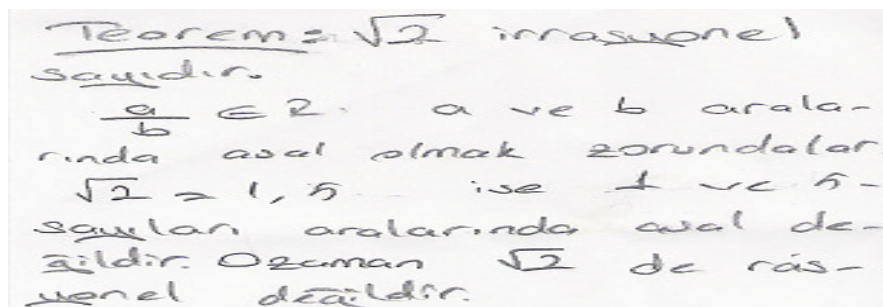 Teorem: √2 irrasyonel
sayıdır.
a/b ∈ R. a ve b arala-
rında asal olmak zorundalar
√2 = 1,5 ise 1 ve 5
sayıları aralarında asal de-
ğildir. Ozaman √2 de ras-
yonel değildir.